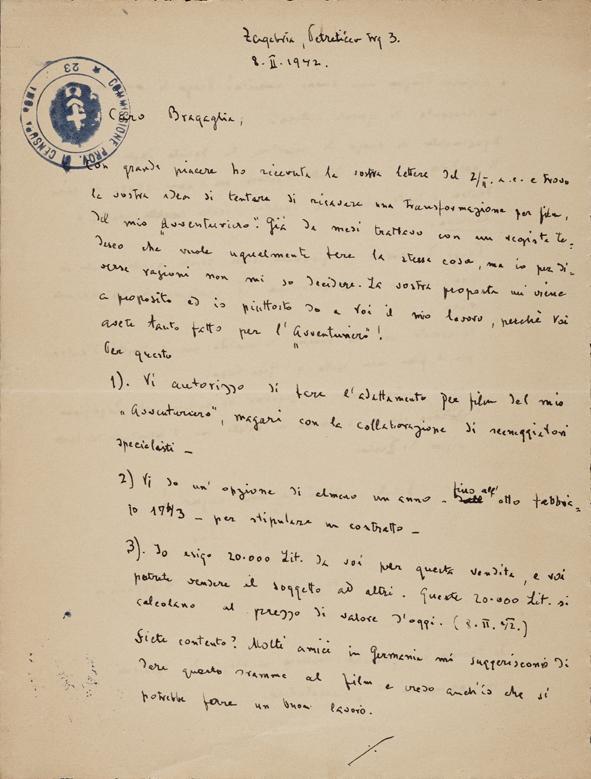 Zagabria, Petretićev trg 3.
8. II. 1942.
COMMISSIONE PROV. DI CENSURA
23
Caro Bragaglia,
con grande piacere ho ricevuta la vostra lettera del 2/II. a.c. e trovo
la vostra idea di tentare di ricavare una transformazione per film,
del mio "Avventuriero". Già da mesi trattavo con un regista te-
desco che vuole ugualmente fare la stessa cosa, ma io per di-
verse ragioni non mi so decidere. La vostra proposta mi viene
a proposito ed io piuttosto do a voi il mio lavoro, perchè voi
avete tanto fatto per l'"Avventuriero"!
Per questo
1). Vi autorizzo di fare l'adattamento per film del mio
"Avventuriero", magari con la collaborazione di sceneggiatori
specialisti —
2) Vi do un' opzione di almeno un anno - fino all' otto febbra=
io 1943 — per stipulare un contratto —
3). Io esigo 20.000 Lit. da voi per questa vendita, e voi
potrete vendere il soggetto ad altri. Queste 20.000 Lit. si
calcolano al prezzo di valore d'oggi. (8. II. 42.)
Siete contento? Molti amici in Germania mi suggeriscono di
dare questo dramma al film e credo anch'io che si
potrebbe farne un buon lavoro.